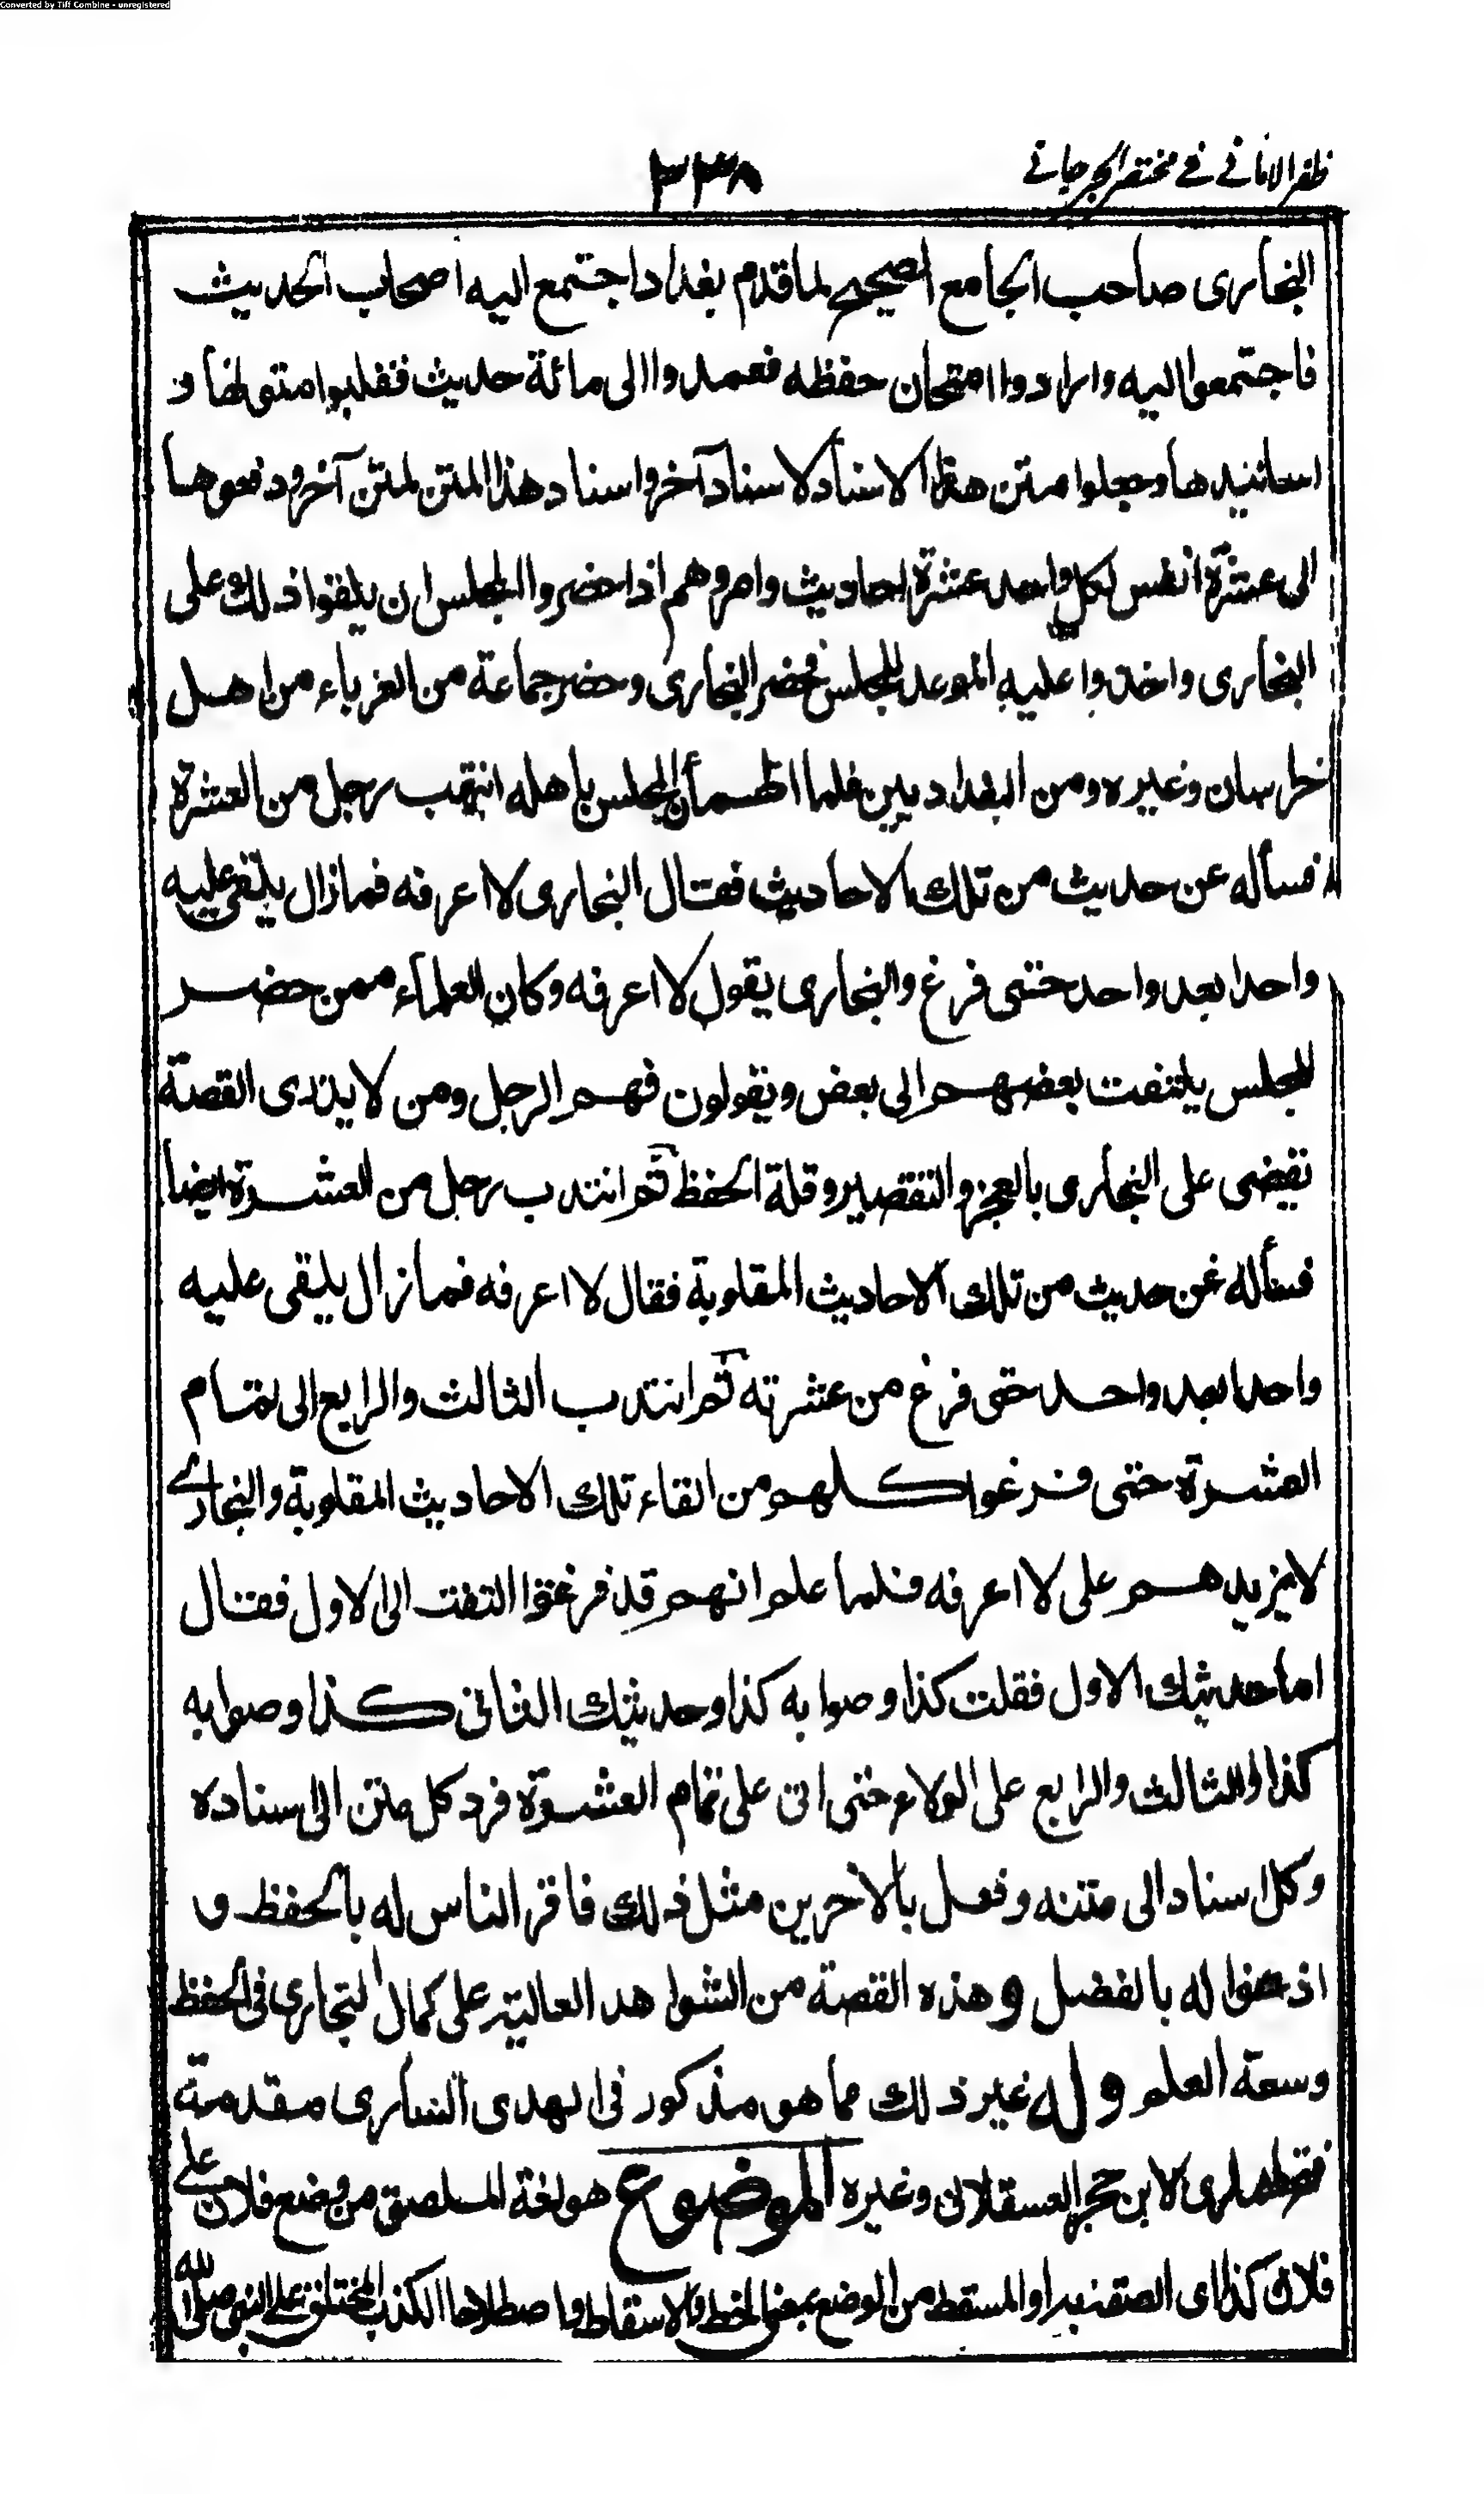 Converted by Tiff Combine - unregistered
ظفر الامانی فی مختصر الجرجانی ۲۳۸
البخاری صاحب الجامع الصحیح لما قدم بغداد اجتمع الیه اصحاب الحدیث
فاجتمعوا الیه وارادوا امتحان حفظه فعمدوا الی مائة حدیث فقلبوا متونها و
اسانیدها وجعلوا متن هذا الاسناد لاسناد آخر واسناد هذا المتن لمتن آخر ودفعوها
الی عشرة انفس لکل واحد عشرة احادیث وامروهم اذا حضروا المجلس ان یلقوا ذلك علی
البخاری واخذوا علیه الموعد للمجلس فحضر البخاری وحضر جماعة من الغرباء من اهل
خراسان وغیره ومن البغدادیین فلما اطمأن المجلس باهله انتدب رجل من العشرة
فسأله عن حدیث من تلك الاحادیث فقال البخاری لا اعرفه فما زال یلقی علیه
واحدا بعد واحد حتی فرغ والبخاری یقول لا اعرفه وکان العلماء ممن حضر
المجلس یلتفت بعضهم الی بعض ویقولون فهم الرجل ومن لا یدری القصة
تقضی علی البخاری بالعجز والتقصیر وقلة الحفظ ثم انتدب رجل من العشرة ایضا
فسأله عن حدیث من تلك الاحادیث المقلوبة فقال لا اعرفه فما زال یلقی علیه
واحدا بعد واحد حتی فرغ من عشرته ثم انتدب الثالث والرابع الی تمام
العشرة حتی فرغوا کلهم من القاء تلك الاحادیث المقلوبة والبخاری
لا یزیدهم علی لا اعرفه فلما علم انهم قد فرغوا التفت الی الاول فقال
اما حدیثك الاول فقلت کذا وصوابه کذا وحدیثك الثانی کذا وصوابه
کذا والثالث والرابع علی الولاء حتی اتی علی تمام العشرة فرد کل متن الی اسناده
وکل اسناد الی متنه وفعل بالآخرین مثل ذلك فاقر الناس له بالحفظ و
اذعنوا له بالفضل وهذه القصة من الشواهد العالیة علی کمال البخاری فی الحفظ
وسعة العلم وله غیر ذلك مما هو مذکور فی الهدی الساری مقدمة
لابن حجر العسقلانی وغیره الموضوع هو لغة الملصق من وضع فلان علی
فلان کذا ای او المسقط من الوضع بمعنی الحط والاسقاط واصطلاحا الکذب المختلق علی النبی صلی الله